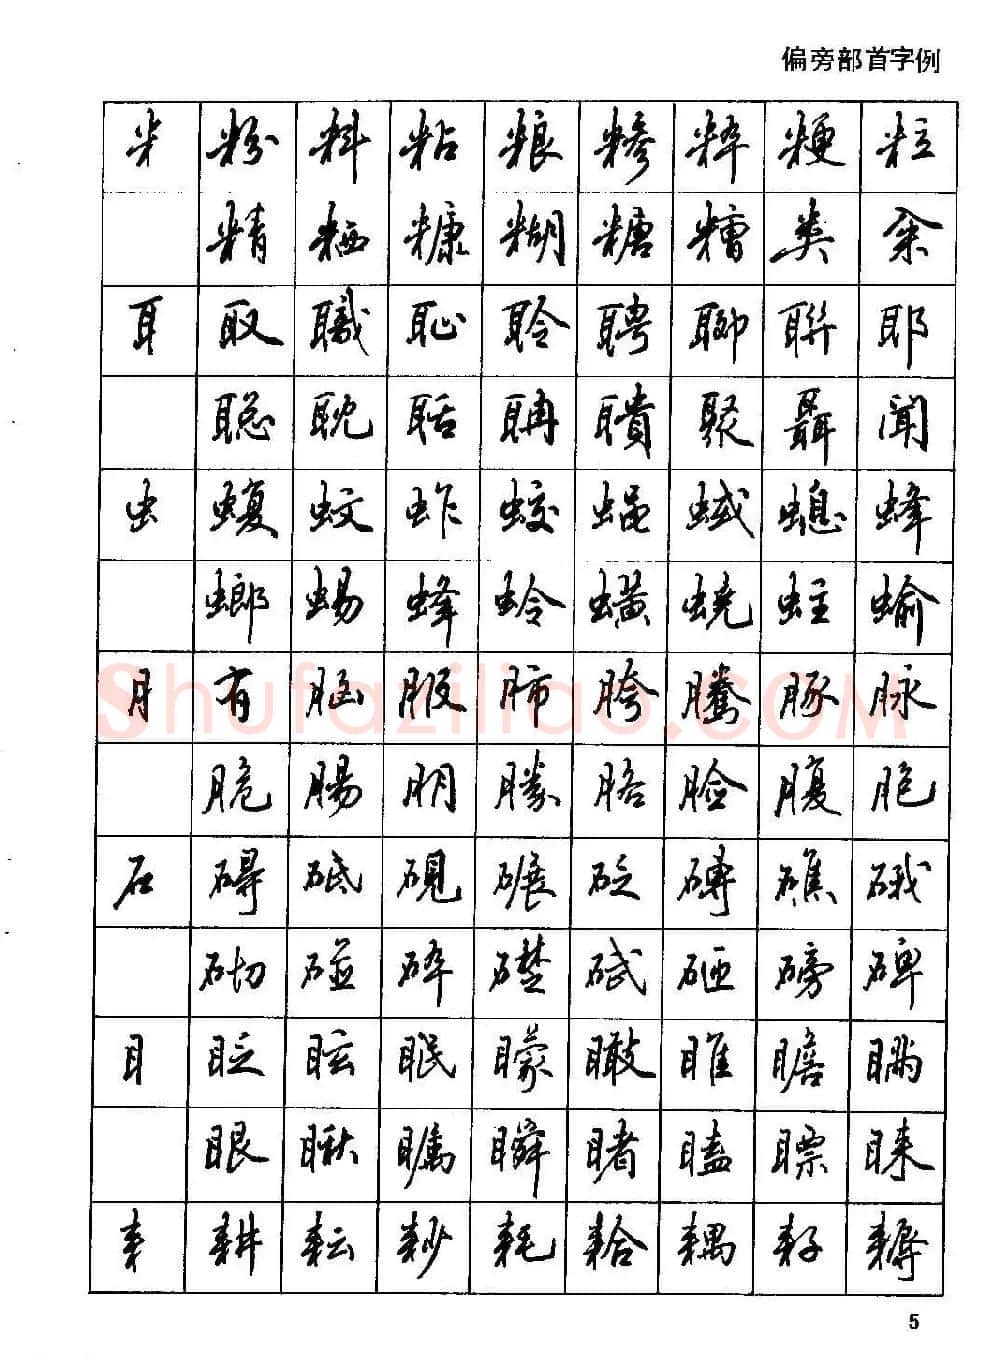 偏旁部首字例
米 粉 料 粘 粮 糁 粹 粳 粒
精 粞 糠 糊 糖 糟 类 籴
耳 取 職 耻 聆 聘 聊 联 耶
聪 耽 聒 聃 聩 聚 聂 闻
虫 蝮 蚊 蚱 蛟 蝇 蜮 螅 蜂
螂 蝎 蜂 蛉 蟥 蛲 蛀 蝓
月 有 脑 服 肺 胯 腾 豚 脉
脆 腸 朋 滕 胳 脸 腹 胞
石 碍 砥 硯 碾 砭 磚 礁 硪
砌 碰 碎 礎 砥 砸 磅 碑
目 眨 眩 眠 矇 瞰 睢 瞻 瞒
眼 瞅 瞩 瞬 睹 瞌 瞟 睐
耒 耕 耘 耖 耗 耠 耦 耔 耨
5
Shufaziliao.com